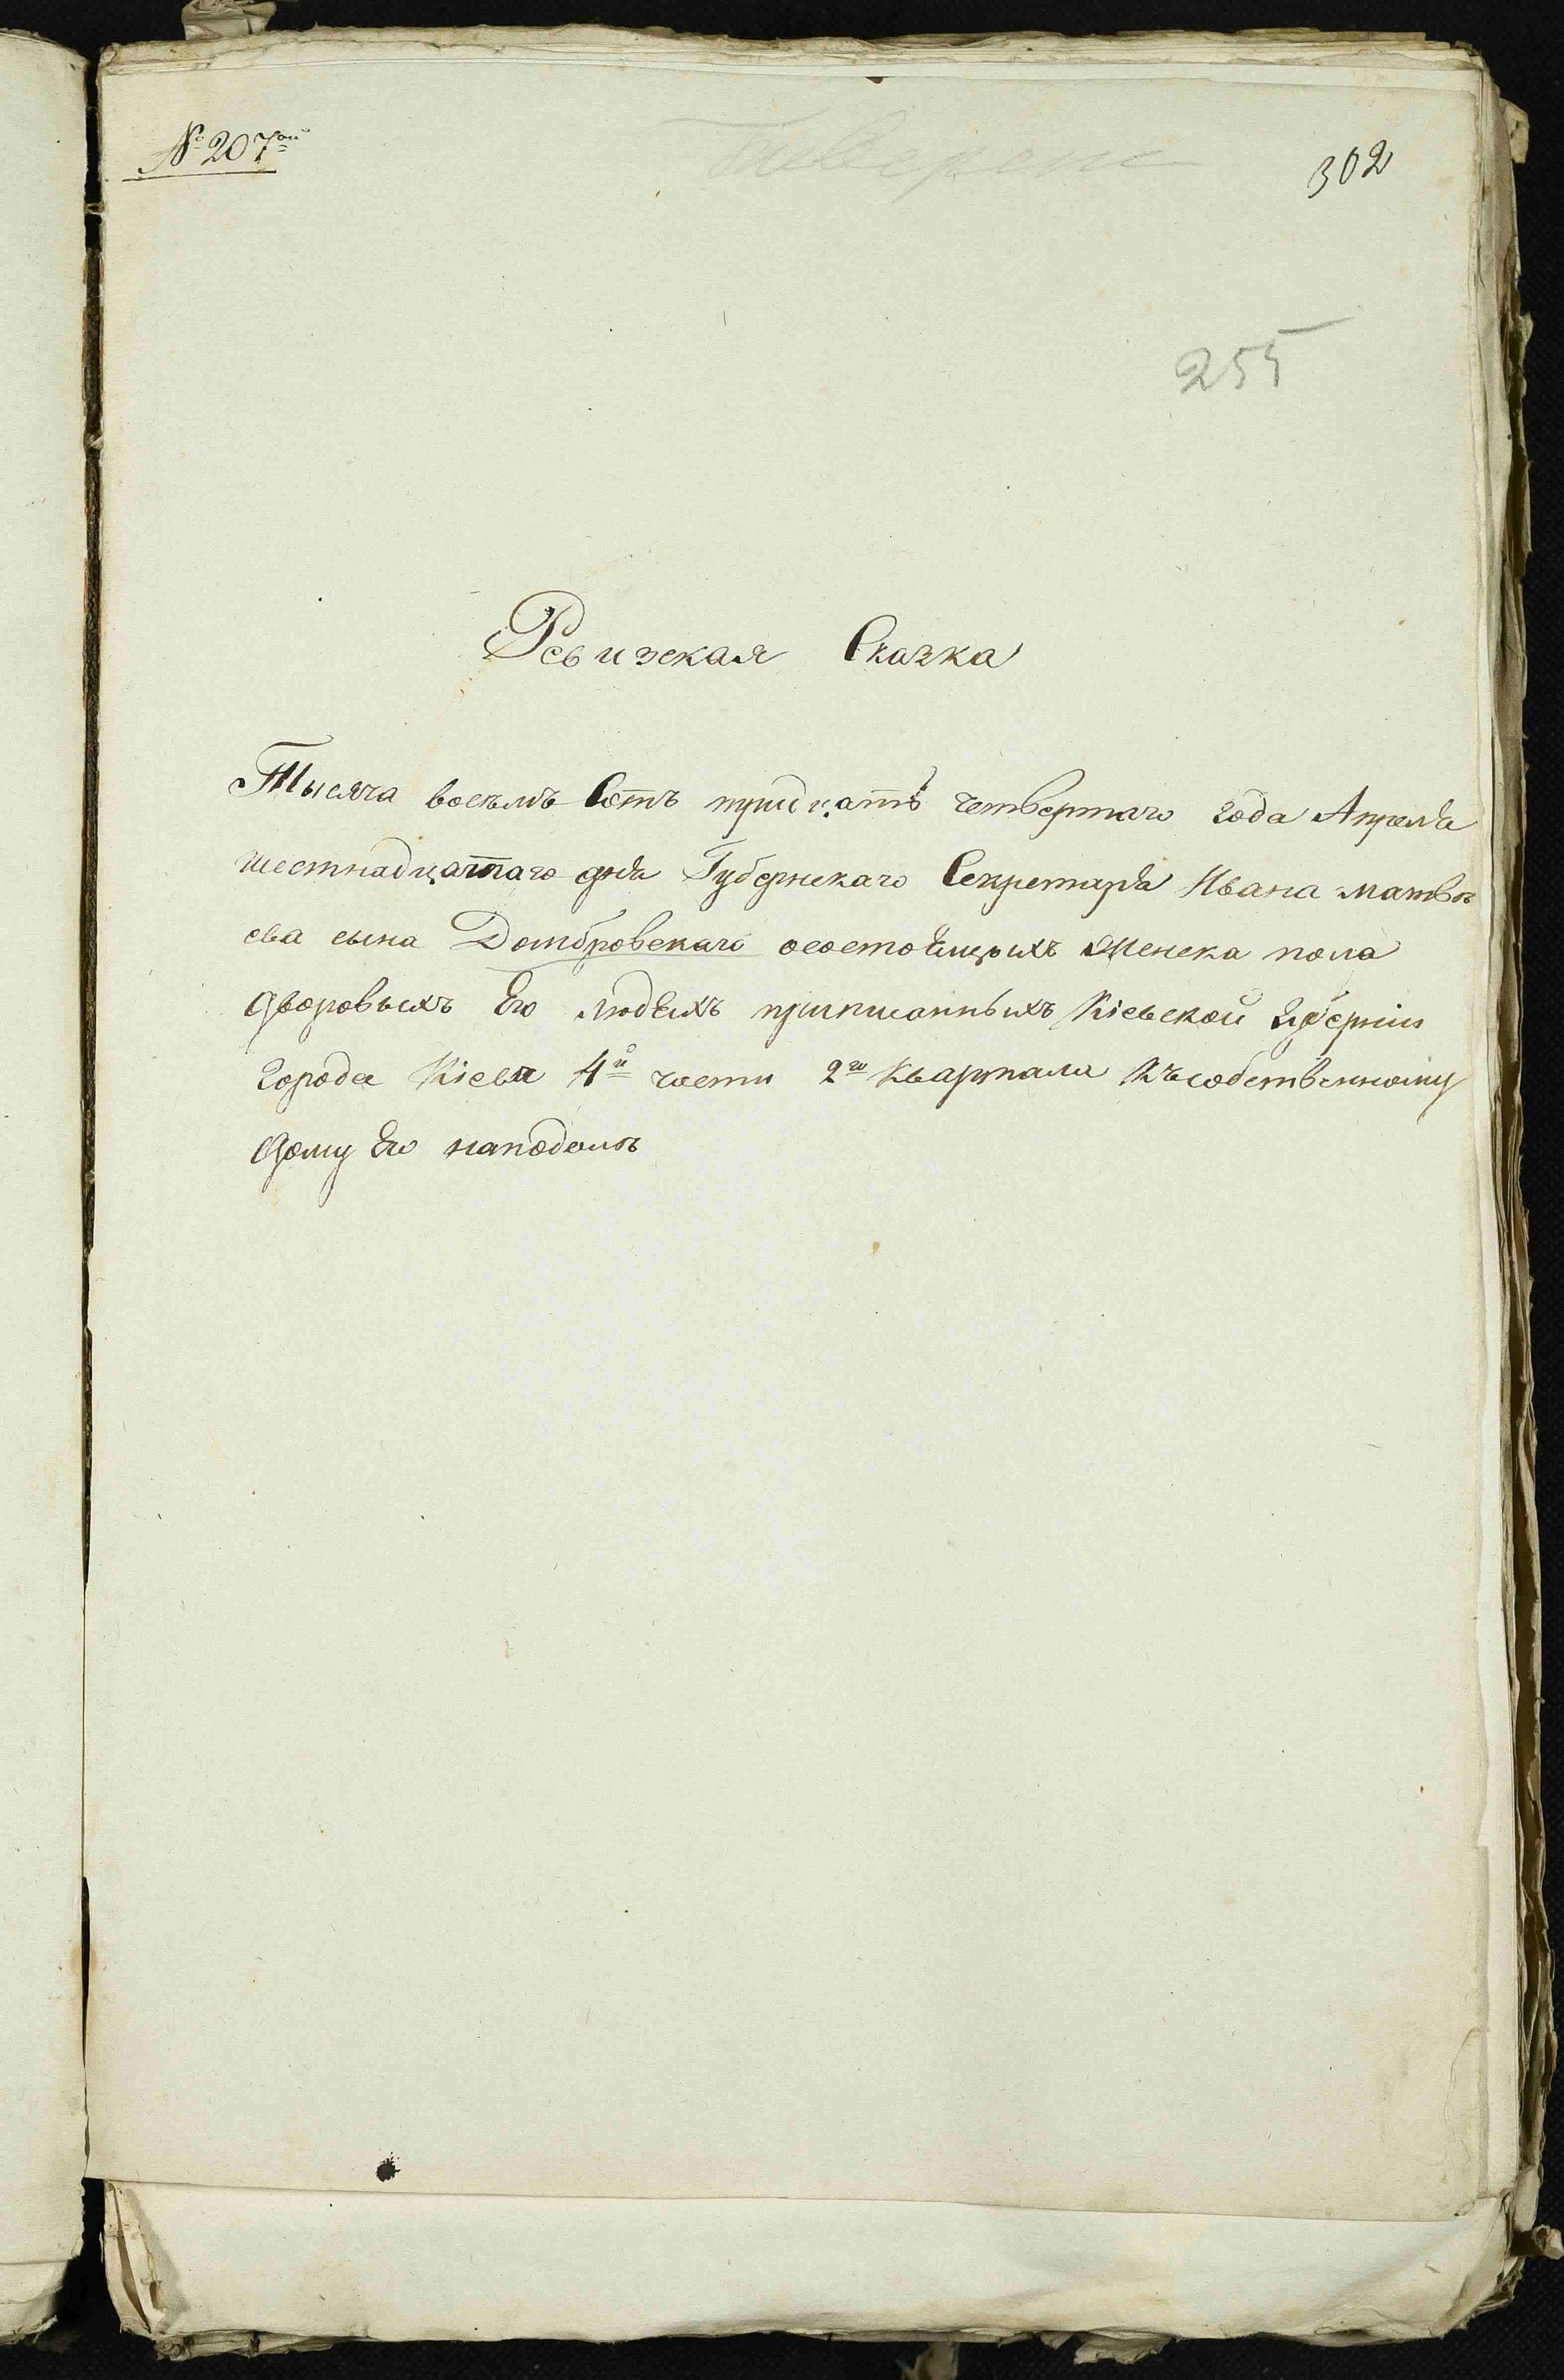 № 207ой
302
255
Ревизская Сказка
Тысяча восемь Сотъ тридцать четвертаго года Апреля
шестнадцатаго дня Губернскаго Секретаря Ивана матвѣ
ева сына Домбровскаго осостоящихъ женска пола
дворовыхъ Его людяхъ приписанныхъ Кіевской губерніи
города Кіева 4й части 2го Квартала Къ собственному
дому Его наподолѣ